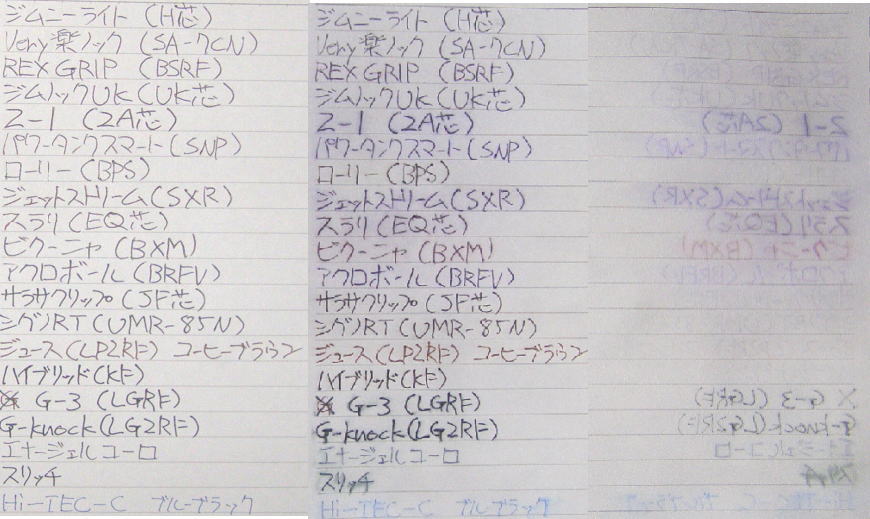 ジムニーライト (H芯)
Very楽ノック (SA-7CN)
REX GRIP (BSRF)
ジムノックUK(UK芯)
Z-1 (2A芯)
パワータンクスマート(SNP)
ローリー (BPS)
ジェットストリーム(SXR)
スラリ(EQ芯)
ビクーニャ(BXM)
アクロボール(BRFV)
サラサクリップ(JF芯)
シグノRT(UMR-85N)
ジュース(LP2RF) コーヒーブラウン
ハイブリッド(KF)
G-3 (LGRF)
G-knock(LG2RF)
エナージェルユーロ
スリッチ
Hi-TEC-C ブルーブラック
ジムニーライト (H芯)
Very楽ノック (SA-7CN)
REX GRIP (BSRF)
ジムノックUK(UK芯)
Z-1 (2A芯)
パワータンクスマート(SNP)
ローリー (BPS)
ジェットストリーム(SXR)
スラリ(EQ芯)
ビクーニャ(BXM)
アクロボール(BRFV)
サラサクリップ(JF芯)
シグノRT(UMR-85N)
ジュース(LP2RF) コーヒーブラウン
ハイブリッド(KF)
G-3 (LGRF)
G-knock(LG2RF)
エナージェルユーロ
スリッチ
Hi-TEC-C ブルーブラック
REX GRIP (BSRF)
ジムノックUK(UK芯)
Z-1 (2A芯)
パワータンクスマート(SNP)
ジェットストリーム(SXR)
スラリ(EQ芯)
ビクーニャ(BXM)
アクロボール(BRFV)
G-3 (LGRF)
G-knock(LG2RF)
エナージェルユーロ
スリッチ
Hi-TEC-C ブルーブラック